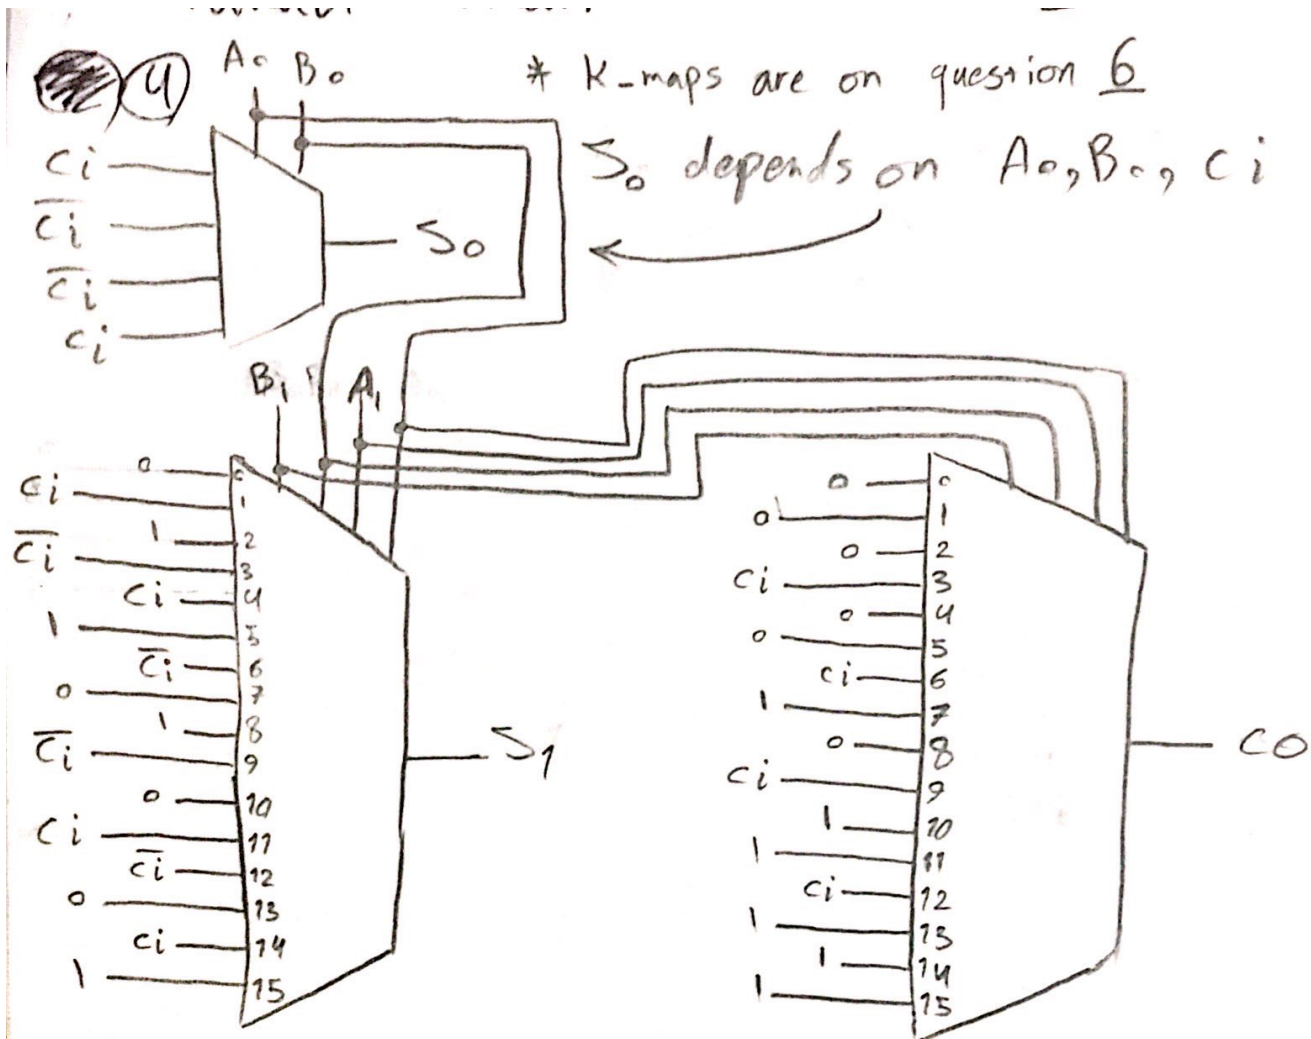 4
A₀ B₀
* K-maps are on question 6
S₀ depends on A₀, B₀, Ci
Ci
C̅i̅
C̅i̅
Ci
S₀
B₁ A₁
0 0
Ci 1
1 2
C̅i̅ 3
Ci 4
1 5
C̅i̅ 6
0 7
1 8
C̅i̅ 9
0 10
Ci 11
C̅i̅ 12
0 13
Ci 14
1 15
S₁
0 0
0 1
0 2
Ci 3
0 4
0 5
Ci 6
1 7
0 8
Ci 9
1 10
1 11
Ci 12
1 13
1 14
1 15
CO